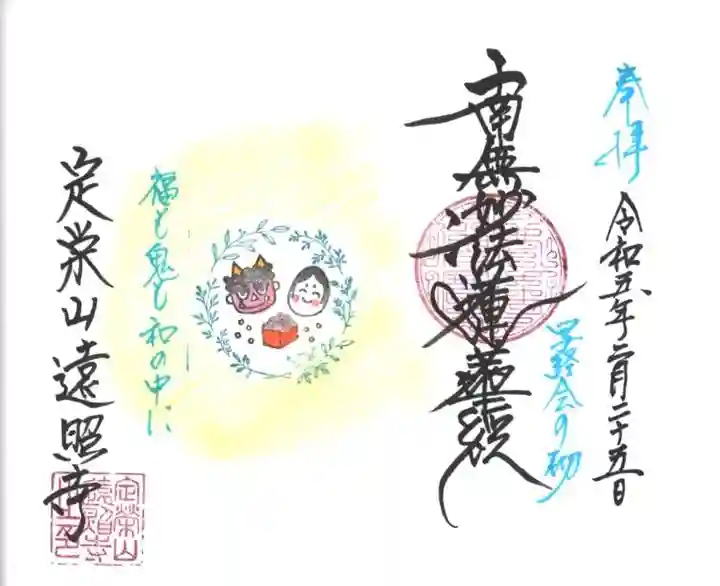 奉拝
令和五年二月二十五日
写経会の砌
南無妙法蓮華経
福も鬼も和の中に
定栄山遠照寺
定榮山
遠照寺